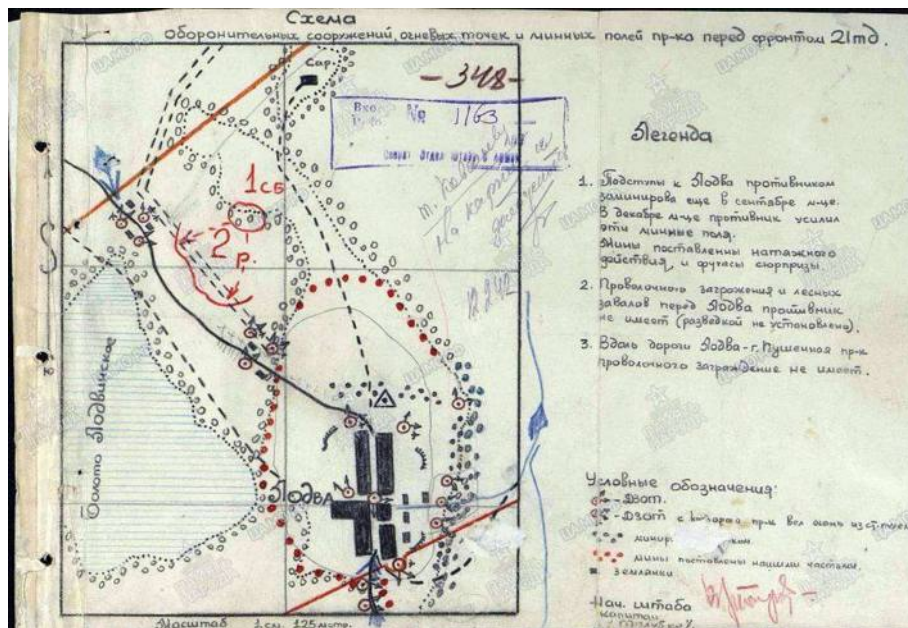 Схема
Оборонительных сооружений, огневых точек и минных полей пр-ка перед фронтом 21тд.
Сар.
-348-
Вхо.
№ 1163
1сб
2
р.
Болото Лодвинское
Лодва
Масштаб 1см. 125мтр.
Легенда
1. Подступы к Лодва противником
заминирова еще в сентябре м-це.
В декабре м-це противник усилил
эти минные поля.
Мины поставленны натажного
действия, и фугасы сюрпризы.
2. Проволочного заграждения и лесных
завалов перед Лодва противник
не имеет (разведкой не установлено).
3. Вдоль дороги Лодва-г. Пушечная пр-к
проволочного заграждение не имеет.
Условные обозначения:
- Дзот.
- Дзот с которого пр-к вел огонь из ст.пулем
минир
- мины поставлены нашими частями.
Землянки
Нач. штаба
капитан